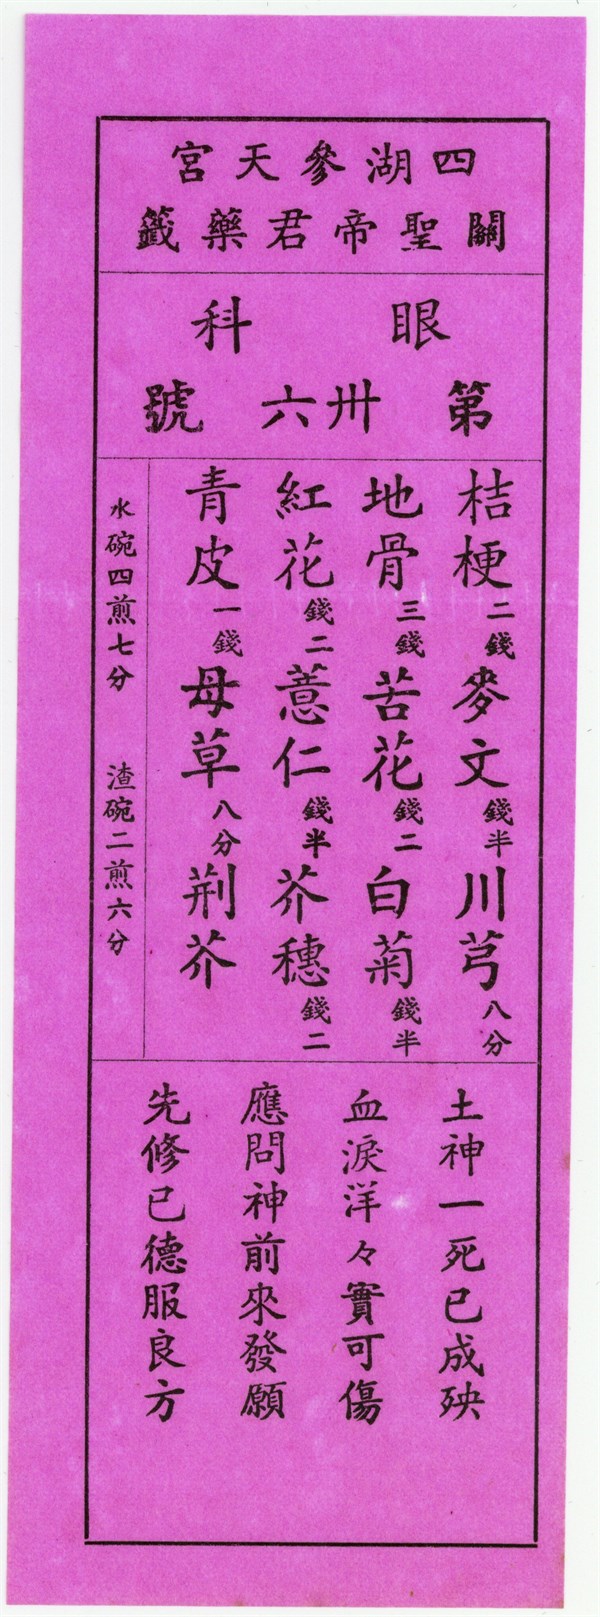 四湖參天宮
關聖帝君藥籤
眼科
第卅六號
桔梗二錢麥文錢半川芎八分
地骨三錢苦花錢二白菊錢半
紅花錢二薏仁錢半芥穗錢二
青皮一錢母草八分荆芥
水碗四煎七分 渣碗二煎六分
土神一死已成殃
血淚洋々實可傷
應問神前來發願
先修已德服良方